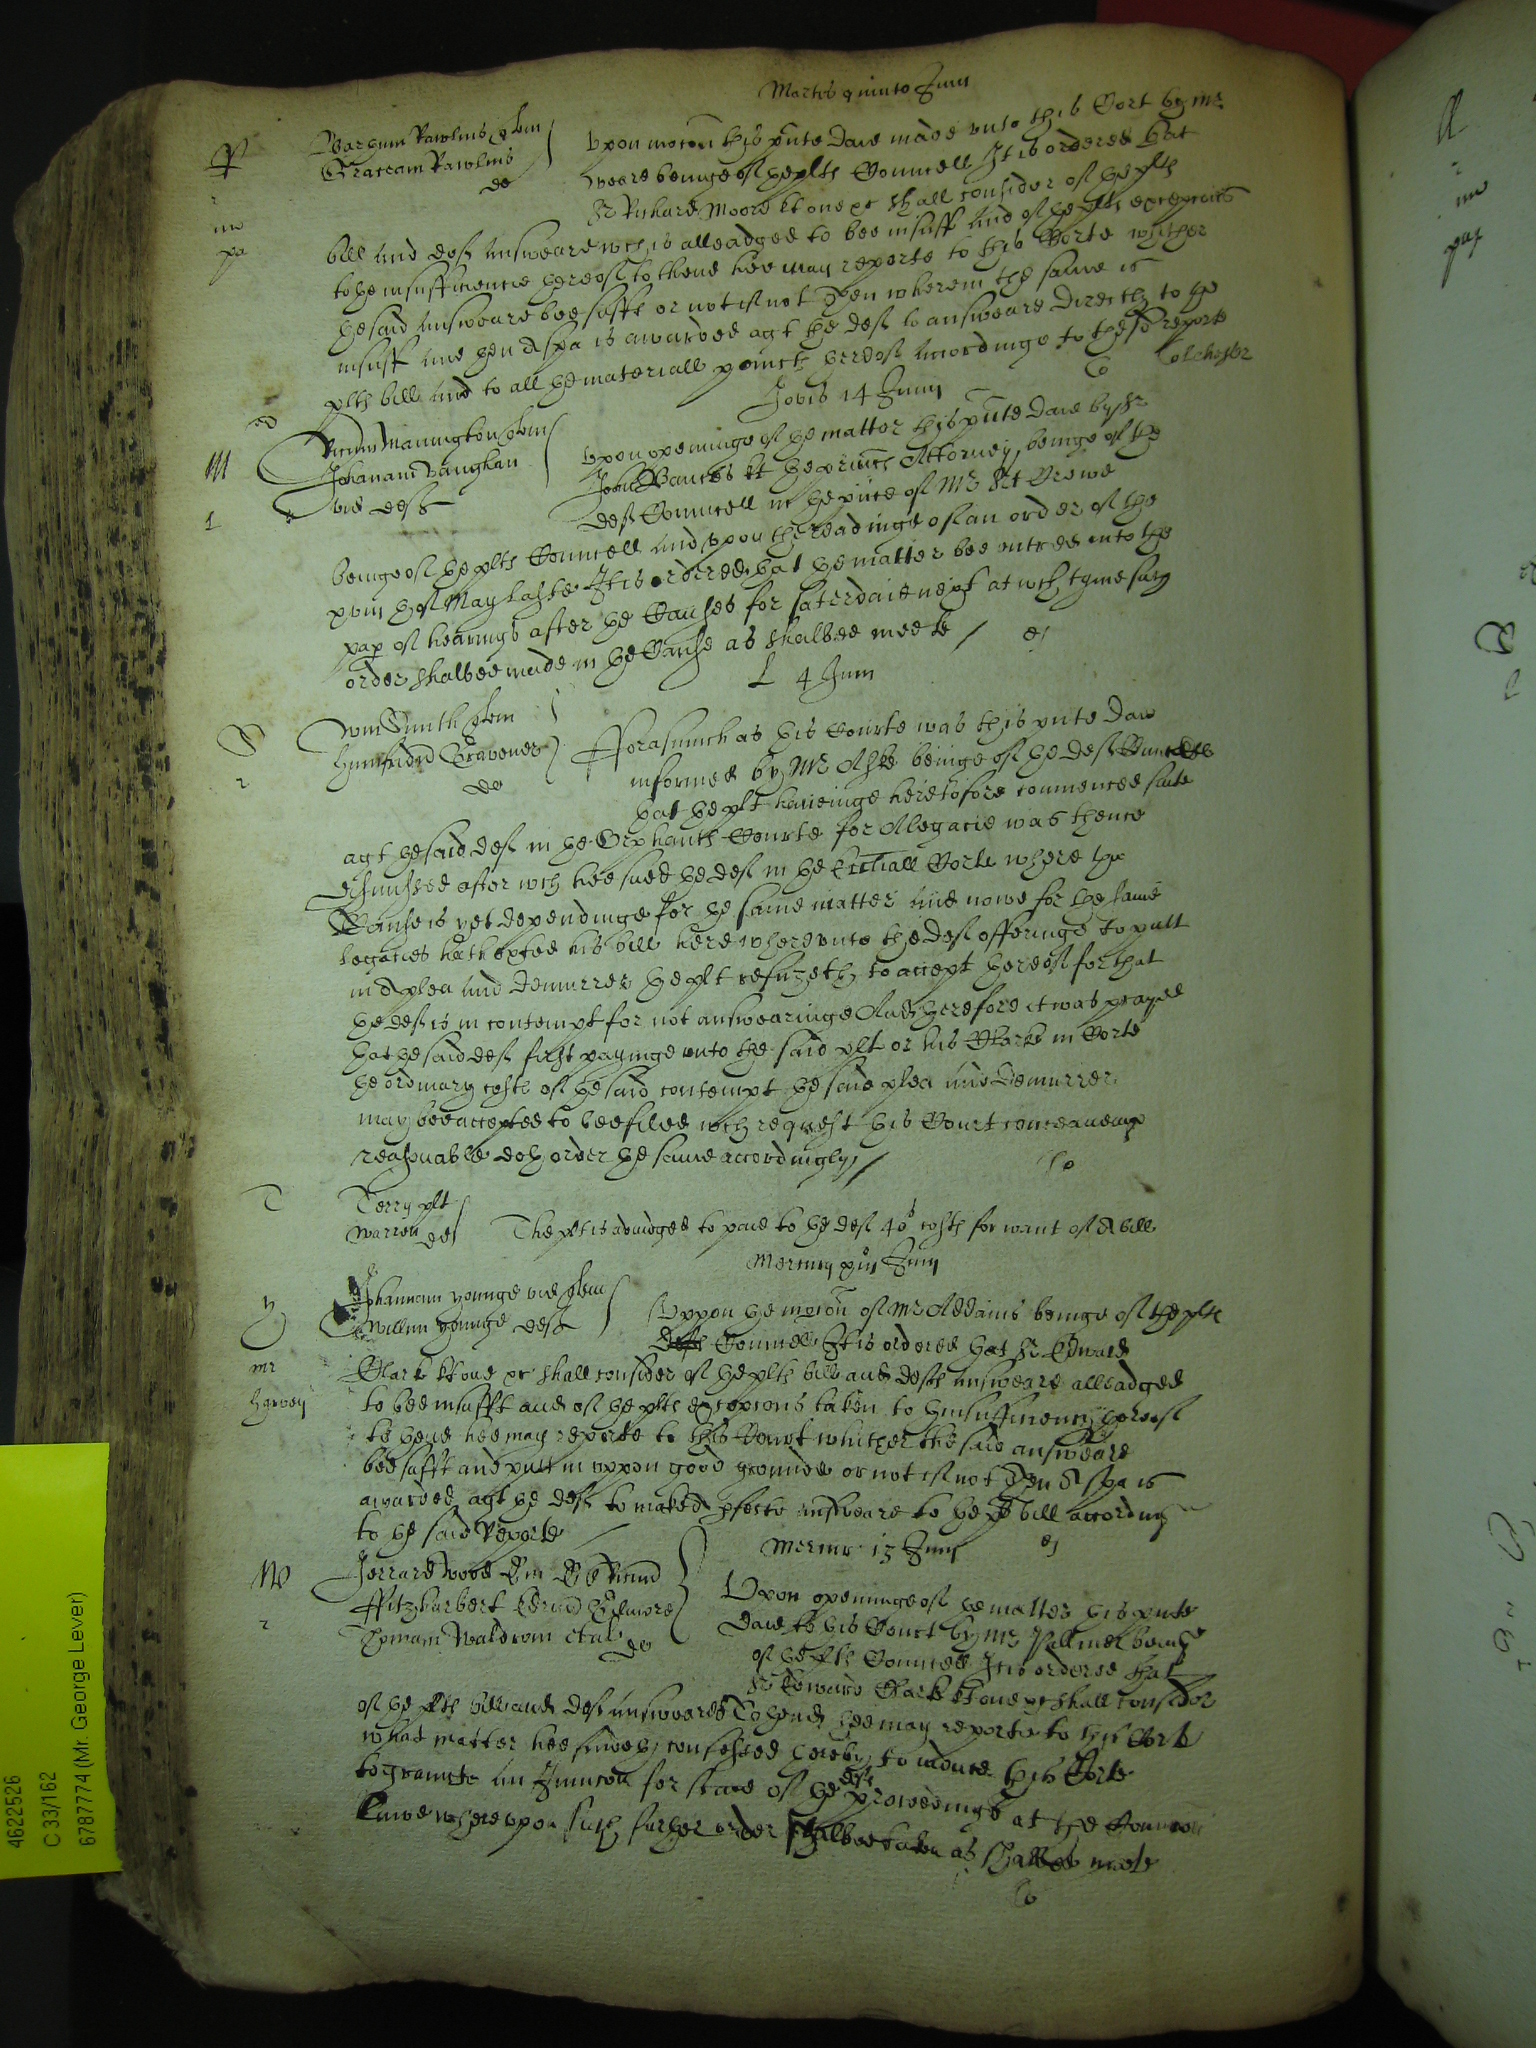 Martis quinto Junij
R
Rawlins quem
Rawlins
de
Upon mocon this pnte daie made unto this Cort by Mr
weare beinge of the plts Councell It is ordered that
Sr Richard Moore kt one &c shall consider of the plts
bill and def answeare wch is alleadged to bee insuff and of the plts excepcons
to the insufficiencie thereof to thend hee may reporte to this Corte whither
the said answeare bee sufft or not if not then wherein the same is
insuff and then A spa is awarded agt the def to answeare directly to the
plts bill and to all the materiall points thereof accordinge to the sd reporte
Jovis 14 Junij
M
1
Manington quem
Johanam Vaughan
vid deft
Upon openinge of the matter this pnte daie by Sr
John Bankes kt the princs Attorney, beinge of the
def Councell in the pnce of Mr Sit Crewe
beinge of the plts Councell and upon the readinge of an order of the
xviij th of May laste It is ordered that the matter bee entred into the
pap of hearings after the Causes for saterdaie next at wch tyme such
order shalbee made in the Cause as shalbee meete
L 4 Junij
S
2
Wm Smith quem
Humfridd Gravener
de
Forasmuch as this Courte was this pnte daie
informed by Mr Aske beinge of the def Councell
that the plt haveinge heretofore commenced suite
agt the said def in the Orphants Courte for A legacie was thence
dismissed after wch hee sued the def in the Ecctiall Corte where the
Cause is yet dependinge for the same matter and nowe for the same
legacies hath exhted his bill here whereunto the def offeringe to putt
in A plea and demurrer the plt refuzeth to accept thereof for that
the def is in contempt for not answearinge And therefore it was prayed
that the said def first payinge unto the said plt or his Clarke in Corte
the ordinary costs of the said contempt the said plea and demurrer
may bee accepted to bee filed wch request this Court conceaveing
reasonable doth order the same accordingly
T
Terry plt
Warren def
The plt is adiudged to paie to the def 40s costs for want of A bill
Mercurij xiij Junij
Y
mr
harvey
Johannam younge vid quem
Willm younge deft
Uppon the mocon of Mr Addams beinge of the plts
Councell It is ordered that Sr Edward
Clark kt one &c shall consider of the plts bill and defts answeare alleadged
to bee insufft and of the plts excepcons taken to thinsufficiency thereof
to thend hee may reporte to this Court whither the said answeare
bee sufft and putt in uppon good grounds or not if not then A spa is
awarded agt the deft to make A pfecte answeare to the plt bill according
to the said Reporte
Mercurij 13 Junij
W
2
Jerrard wood
Ffitzharbert
Waldrom et al
de
Upon openinge of the matter this pnte
daie to this Court by Mr Palmer beinge
of the plts Councell It is ordered that
Sr Edward Clark kt one &c shall consider
of the plts bill and def answeares To thend hee may reporte to this Corte
what matter hee findeth confessed thereby to move this Corte
to graunte an Iniuncon for staie of the defts proceedings at the Common
Lawe whereupon such further order shalbee taken as shalbee meete
4622526
C 33/162
6787774 (Mr. George Lever)